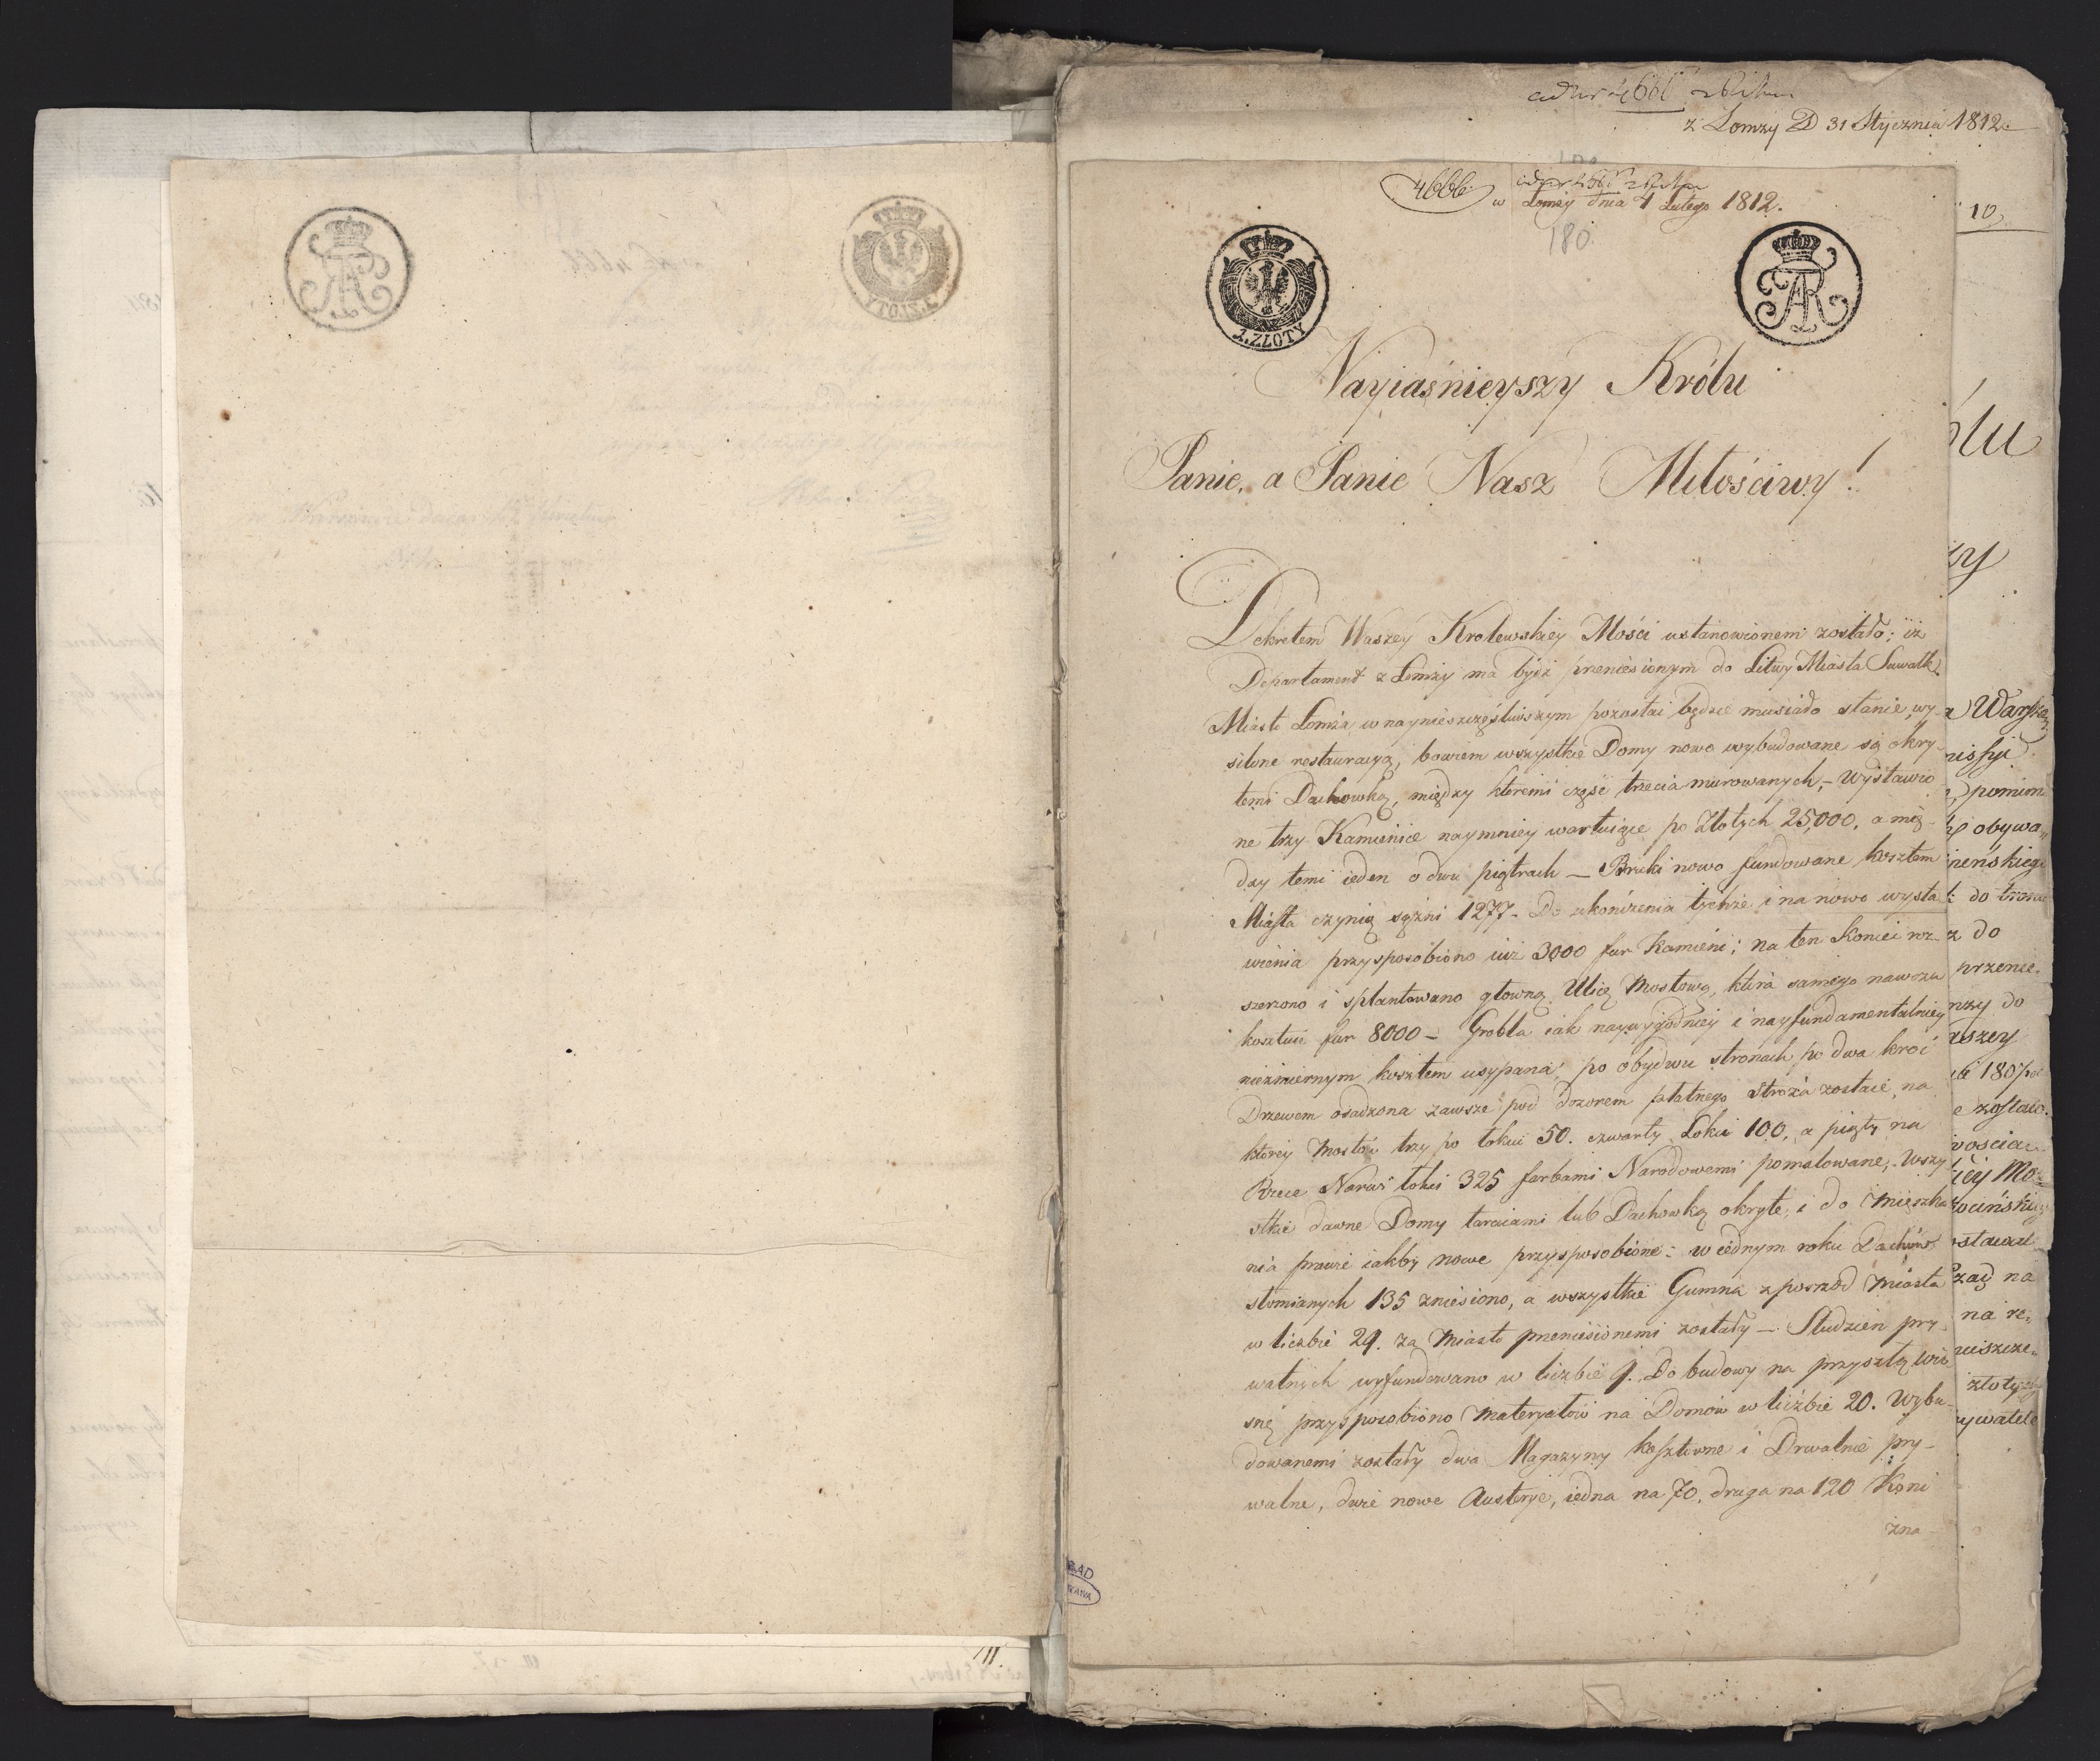 z Lomzy D 31 Stycznia 1812.
4666.
w Łomży dnia 4 Lutego 1812.
180
10,
1. ZŁOTY
Nayiaśnieyszy Królu
Panie, a Panie Nasz Miłościwy!
Dekretem Waszey Krolewskiey Mości ustanowionem zostało; iż
Departament z Łomży ma bydź przeniesionym do Litwy Miasta Suwałk.
Miasto Łomża, w naynieszczęśliwszym pozostać będzie musiało stanie, wy-
silone restauracyą, bowiem wszystkie Domy nowo wybudowane są okry-
temi Dachowką, między któremi część trzecia murowanych, – Wystawio
ne trzy Kamienice naymniey wartuiące po Złotych 25,000, a mię-
dzy temi ieden o dwu piętrach – Bruki nowo fundowane kosztem
Miasta czynią sążni 1277 – Do ukończenia tychże i na nowo wysta-
wienia przysposobiono iuż 3000 fur Kamieni; na ten koniec roz-
szerzono i splantowano głowną Ulicę Mostową, która samego nawozu
kosztuie fur 8000 – Grobla iak naywygodniey i nayfundamentalniey
niezmiernym kosztem usypana, po obydwu stronach po dwa kroć
Drzewem osadzona zawsze pod dozorem płatnego Stroża zostaie, na
ktorey Mostów trzy po łokci 50. czwarty Łokci 100, a piąty na
Rzece Narwi łokci 325 farbami Narodowemi pomalowane, – Wszy-
stkie dawne Domy tarciami lub Dachowką okryte, i do Mieszka
nia prawie iakby nowe przysposobione: w iednym roku Dachów
słomianych 135 zniesiono, a wszystkie Gumna z posrzod Miasta
w liczbie 29. za Miasto przeniesionemi zostały – Studzien pry-
watnych wyfundowano w liczbie 9. Do budowy na przyszłą wio-
snę przysposobiono Materyałów na Domow w liczbie 20. Wybu-
dowanemi zostały dwa Magazyny kosztowne i Drwalnie pry-
watne, dwie nowe Austerye, iedna na 70, druga na 120 Koni
zna-